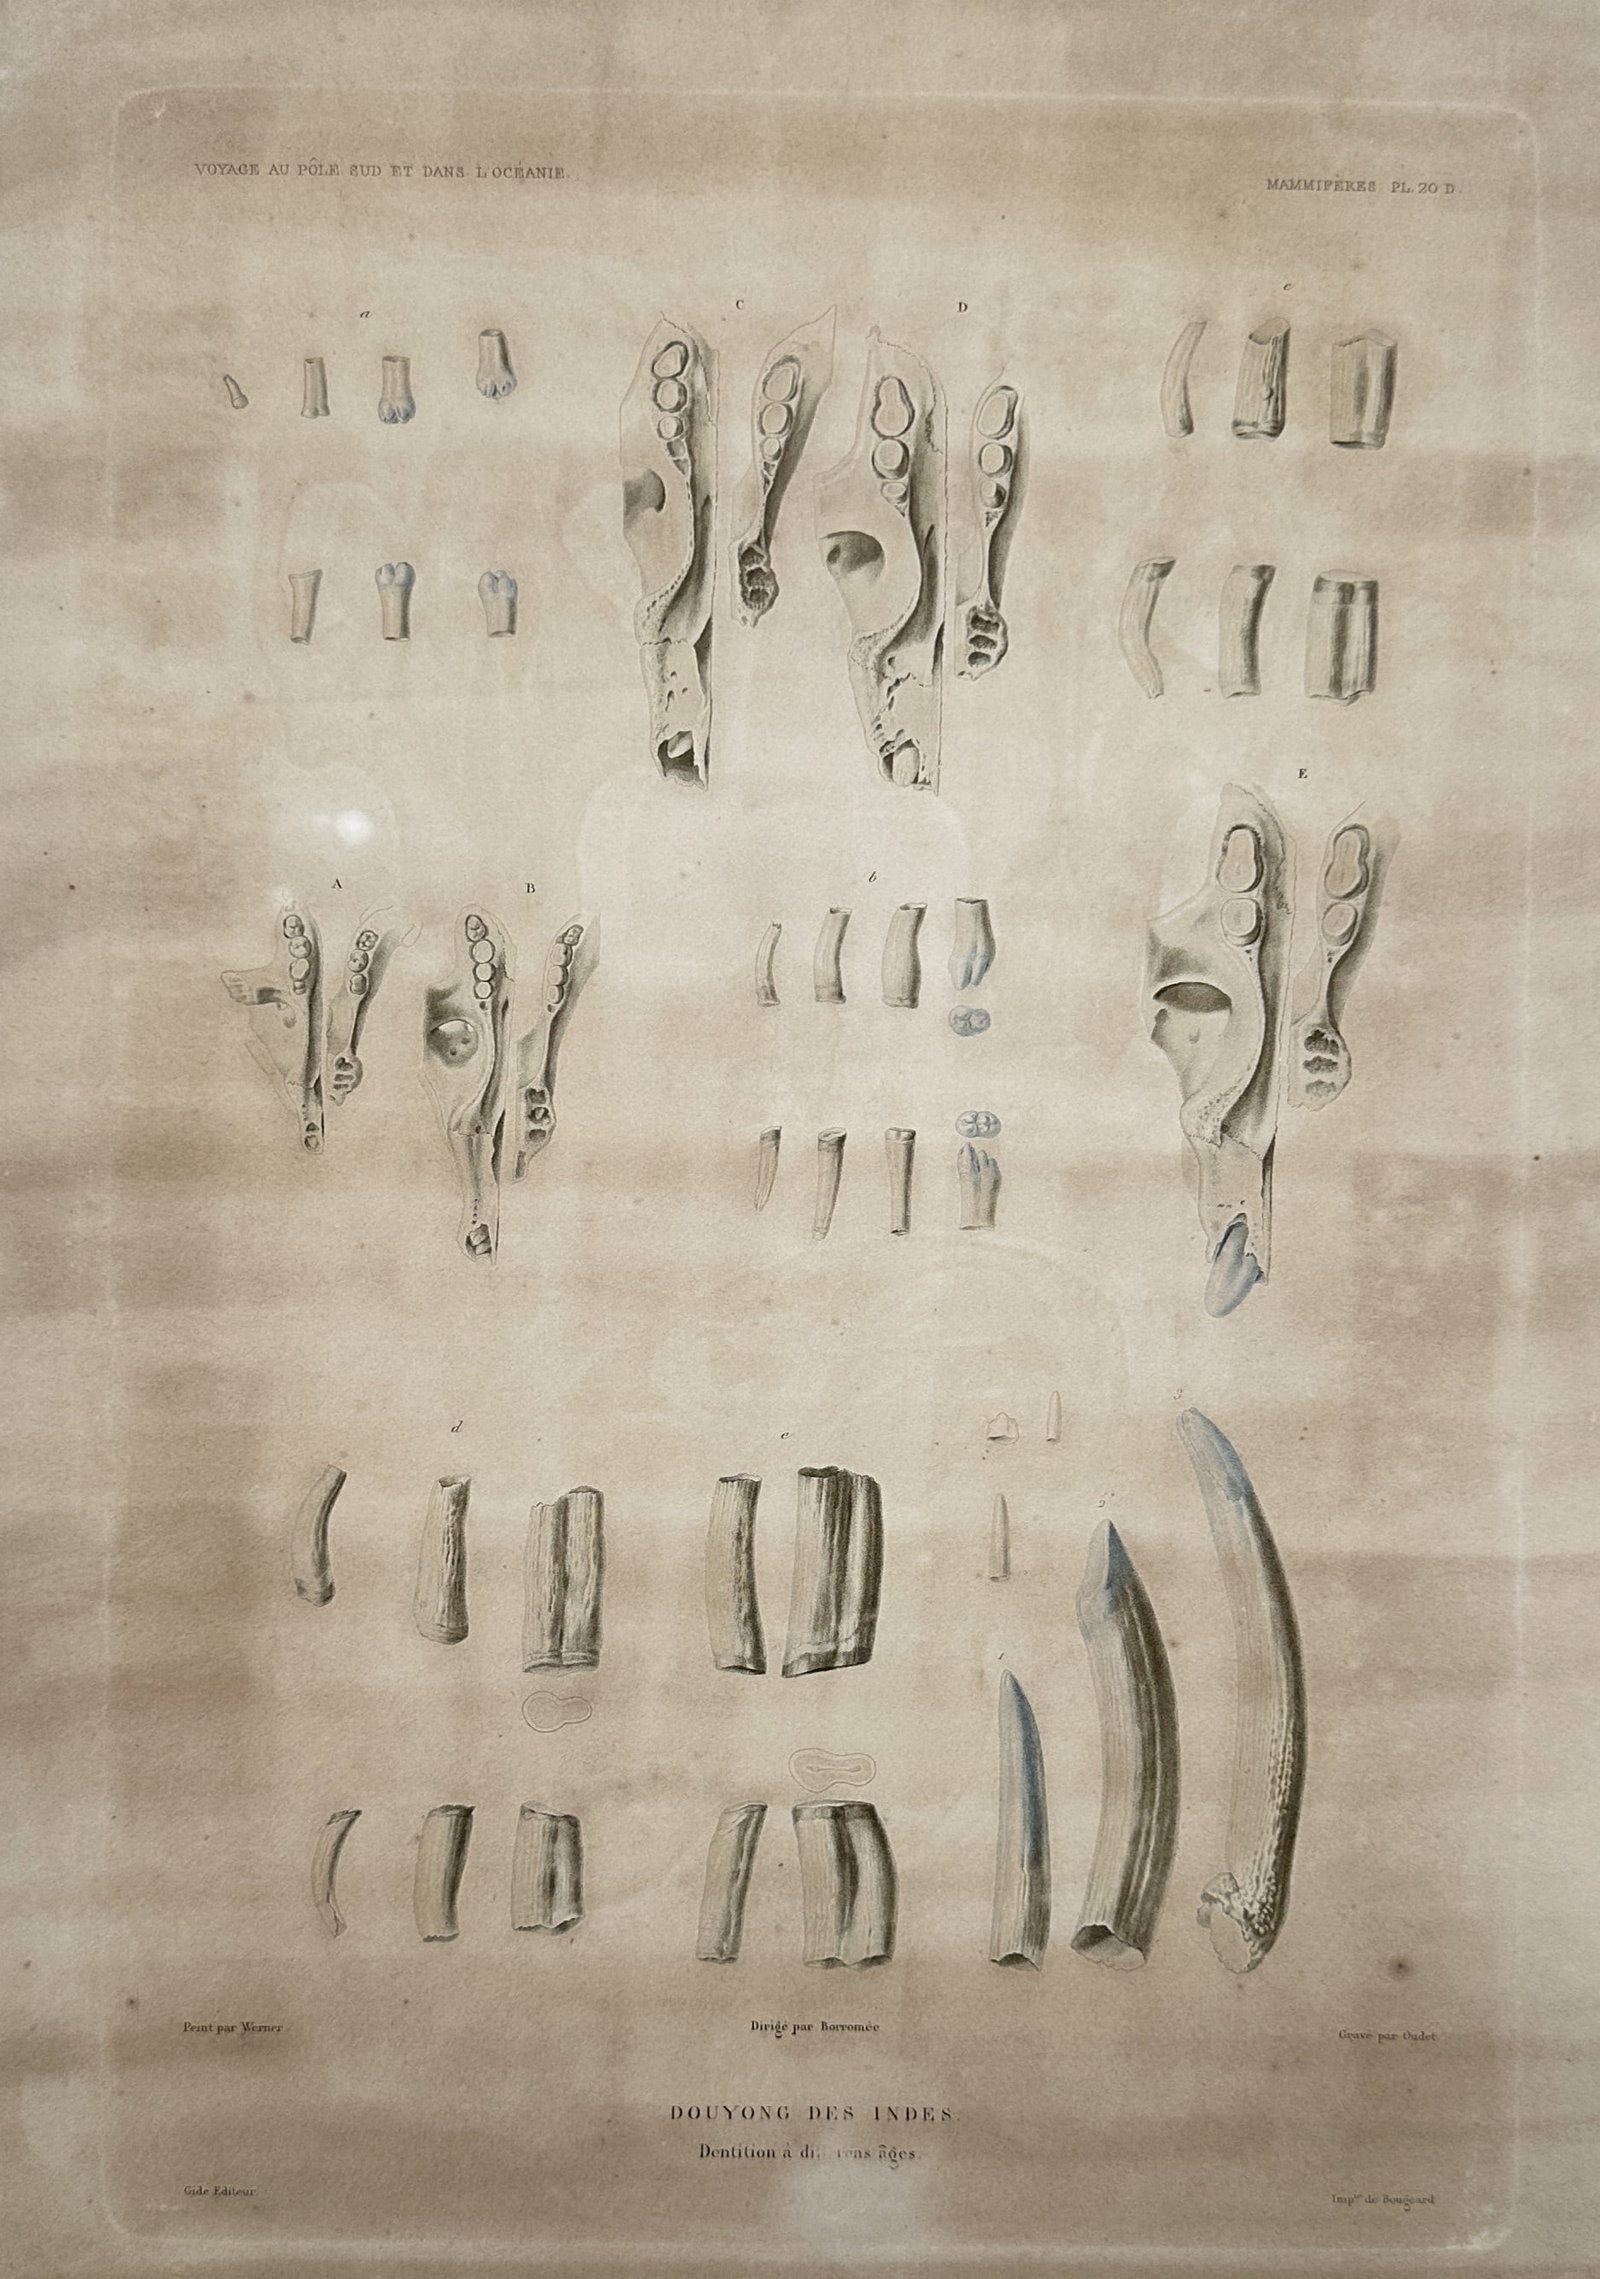 VOYAGE AU PÔLE SUD ET DANS L'OCÉANIE.
MAMMIFÈRES PL. 20 D.
a
C
D
c
E
A
B
b
d
e
3
2
1
Peint par Werner
Dirigé par Borromée
Gravé par Oudet
DOUYONG DES INDES.
Dentition à âges.
Gide Editeur
de Bougeard